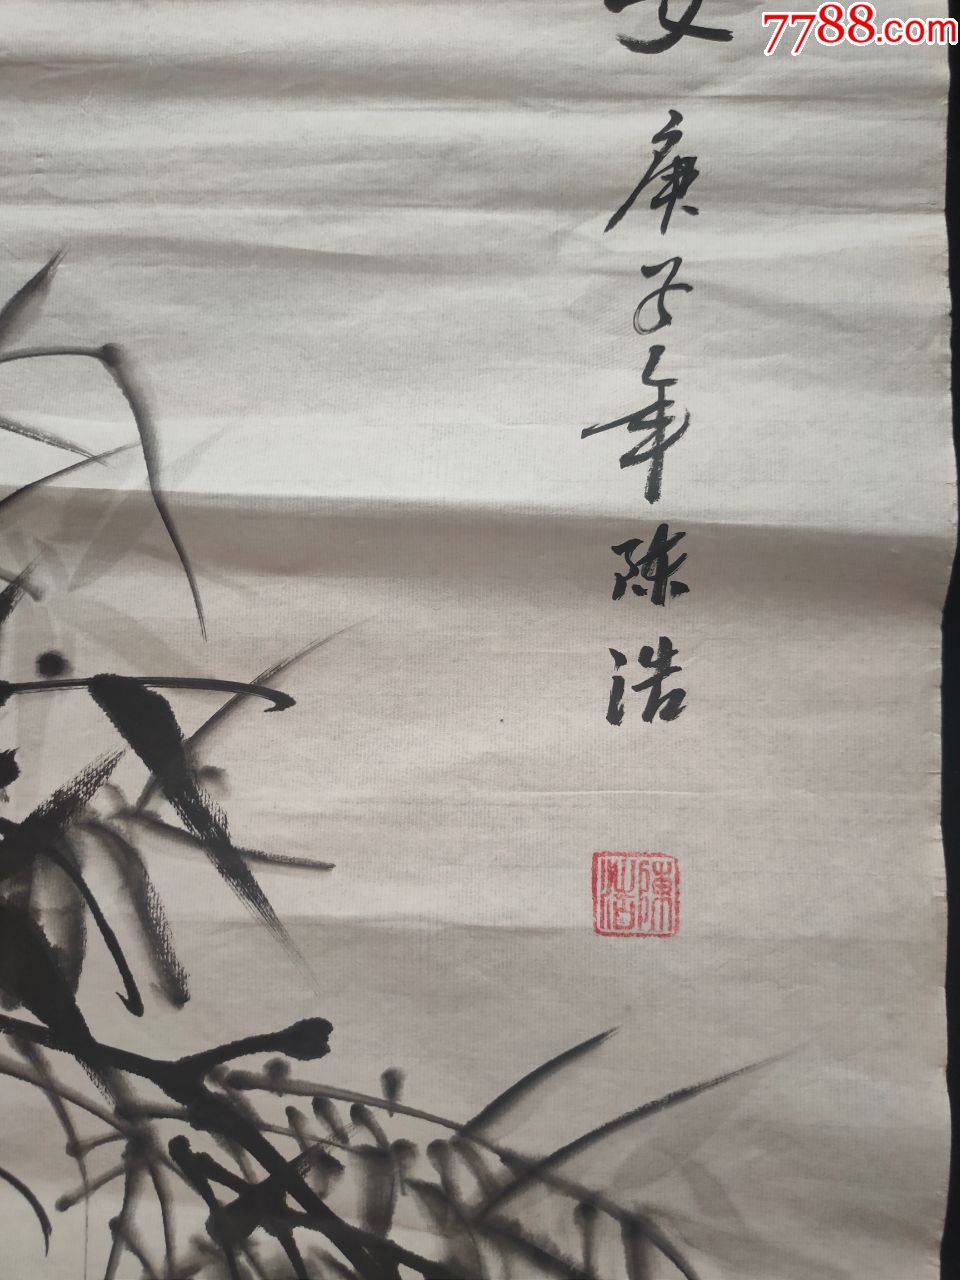 7788.com
安
庚子年陈浩
陳浩